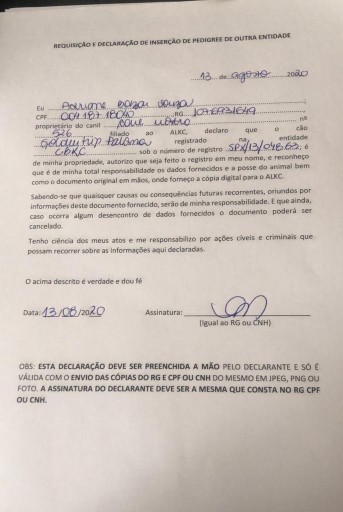 REQUISIÇÃO E DECLARAÇÃO DE INSERÇÃO DE PEDIGREE DE OUTRA ENTIDADE
13 de agosto 2020
Eu Adriane souza
CPF RG
proprietário do canil nº
526 filiado ao ALKC, declaro que o cão
Golden registrado na entidade
CBKC sob o número de registro é
de minha propriedade, autorizo que seja feito o registro em meu nome, e reconheço
que é de minha total responsabilidade os dados fornecidos e a posse do animal bem
como o documento original em mãos, onde forneço a cópia digital para o ALKC.
Sabendo-se que quaisquer causas ou consequências futuras recorrentes, oriundos por
informações deste documento fornecido, serão de minha responsabilidade. E que ainda,
caso ocorra algum desencontro de dados fornecidos o documento poderá ser
cancelado.
Tenho ciência dos meus atos e me responsabilizo por ações cíveis e criminais que
possam recorrer sobre as informações aqui declaradas.
O acima descrito é verdade e dou fé
Data: 13/08/2020 Assinatura:
(Igual ao RG ou CNH)
OBS: ESTA DECLARAÇÃO DEVE SER PREENCHIDA A MÃO PELO DECLARANTE E SÓ É
VÁLIDA COM O ENVIO DAS CÓPIAS DO RG E CPF OU CNH DO MESMO EM JPEG, PNG OU
FOTO. A ASSINATURA DO DECLARANTE DEVE SER A MESMA QUE CONSTA NO RG CPF
OU CNH.